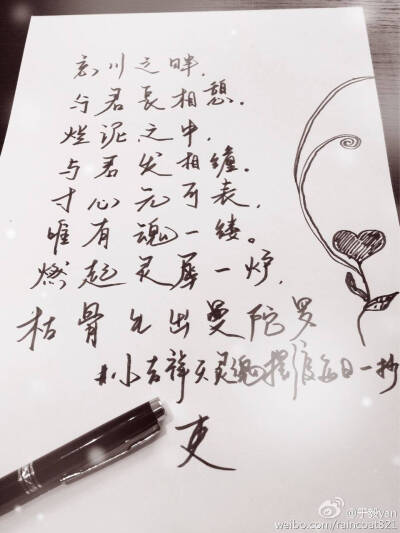 忘川之畔,
与君长相憩,
烂泥之中,
与君发相缠.
寸心无可表,
唯有魂一缕。
燃起灵犀一炉,
枯骨生出曼陀罗
#小吉祥天灵魂摆渡每日一抄
@于毅yan
weibo.com/raincoat821